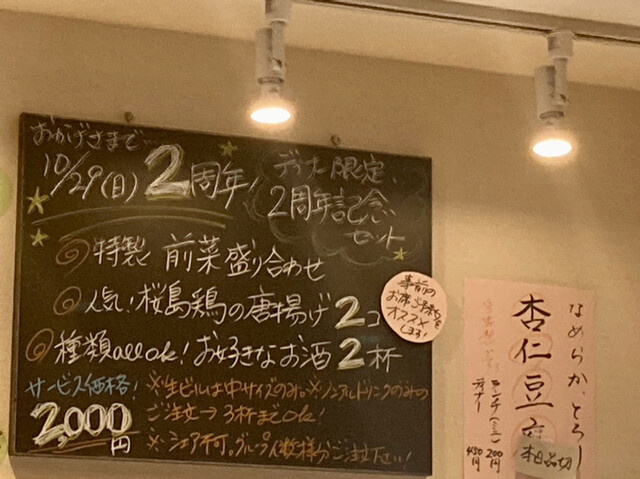 おかげさまで…
10/29(日) 2周年!
ディナー限定、
2周年記念
セット
特製 前菜盛り合わせ
人気!桜島鶏の唐揚げ 2コ
種類all ok! お好きなお酒 2杯
サービス価格!
2,000円
※生ビールは中サイズのみ。※ノンアルドリンクのみの
ご注文→3杯までok!
※シェア不可。グループ人数様分ご注文下さい!
事前の
お席予約を
オススメ
します!
なめらか、とろー
杏仁豆
ランチ(ミニ) 200円
ディナー 430円
本日品切